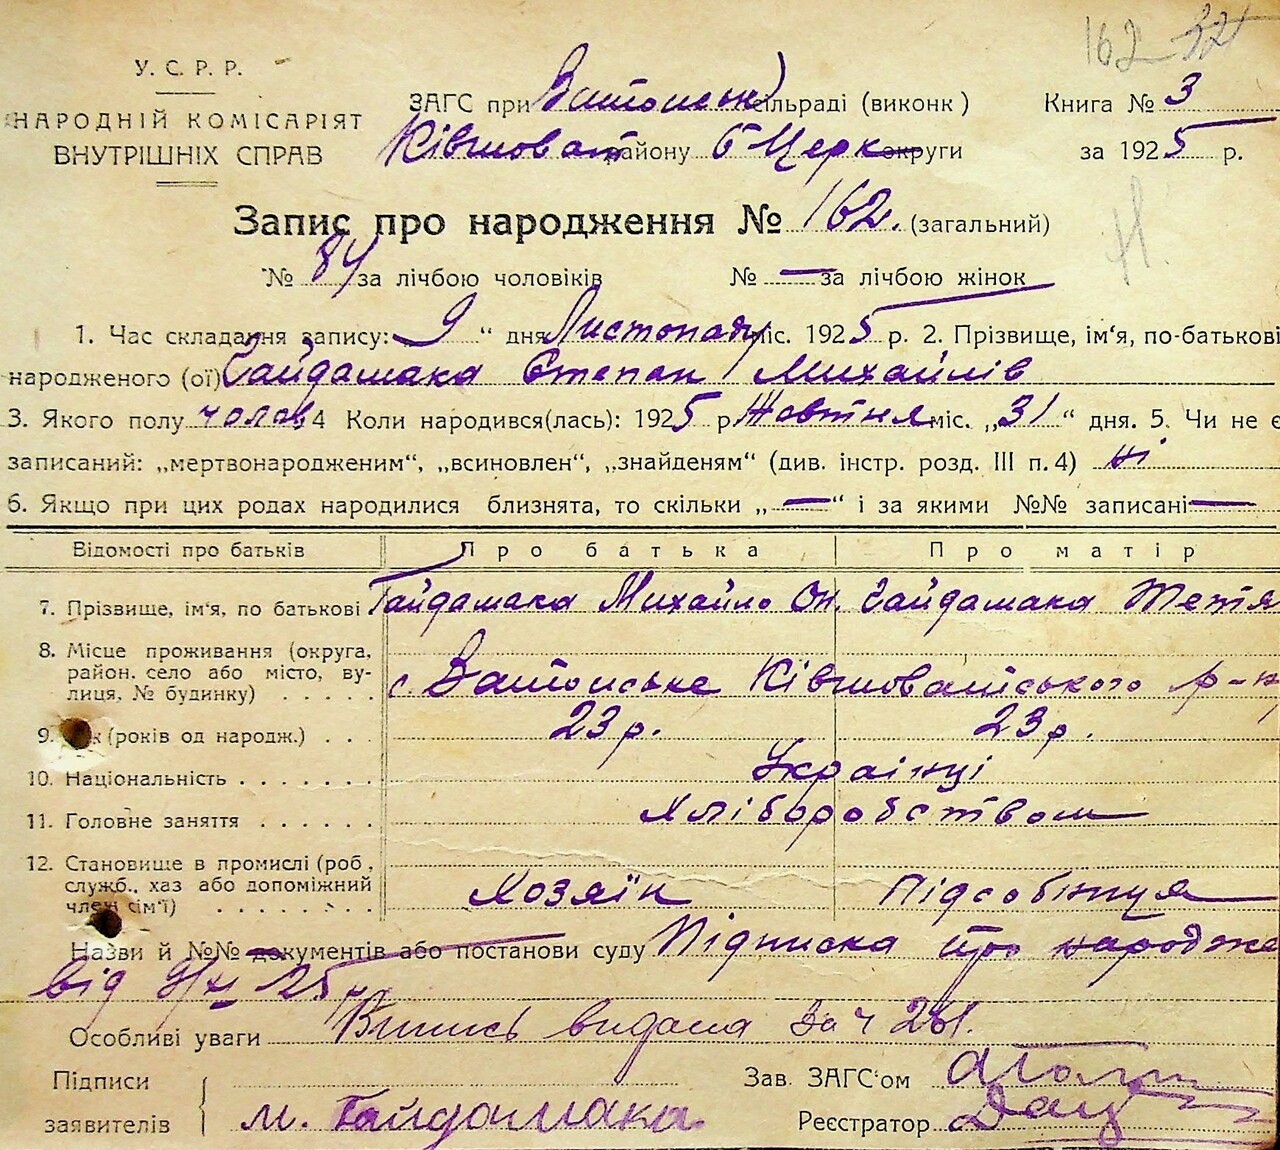 162 32
У. С. Р. Р.
НАРОДНІЙ КОМІСАРІЯТ
ВНУТРІШНІХ СПРАВ
ЗАГС при сільраді (виконк) Книга № 3
Ківшоват району Б Церк округи за 1925 р.
Запис про народження № 162. (загальний)
№ 84 за лічбою чоловіків № — за лічбою жінок
1. Час складання запису: „9“ дня Листопаду міс. 1925 р. 2. Прізвище, ім'я, по-батькові
народженого (ої) Гайдамака Степан Михайлів
3. Якого полу чолов 4 Коли народився(лась): 1925 р Жовтня міс. „31“ дня. 5. Чи не є
записаний: „мертвонародженим“, „всиновлен“, „знайденям“ (див. інстр. розд. III п. 4) ні
6. Якщо при цих родах народилися близнята, то скільки „—“ і за якими №№ записані —
Відомості про батьків Про батька Про матір
7. Прізвище, ім'я, по батькові Гайдамака Михайло Он. Гайдамака Тетя
8. Місце проживання (округа, район, село або місто, вулиця, № будинку) . . . . с. Ківшоватського р-н
9. (років од народж.) . . . 23 р. 23 р.
10. Національність . . . . . . . Українці
11. Головне заняття . . . . . . Хліборобством
12. Становище в промислі (роб., служб., хаз або допоміжний член сім'ї) . . . . . . . Хозяїн Підсобниця
Назви й №№ документів або постанови суду Підписка про народже
від 9/XI 25 р.
Особливі уваги Випись видана за ч 261.
Підписи
заявителів М. Гайдамака.
Зав. ЗАГС'ом
Реєстратор